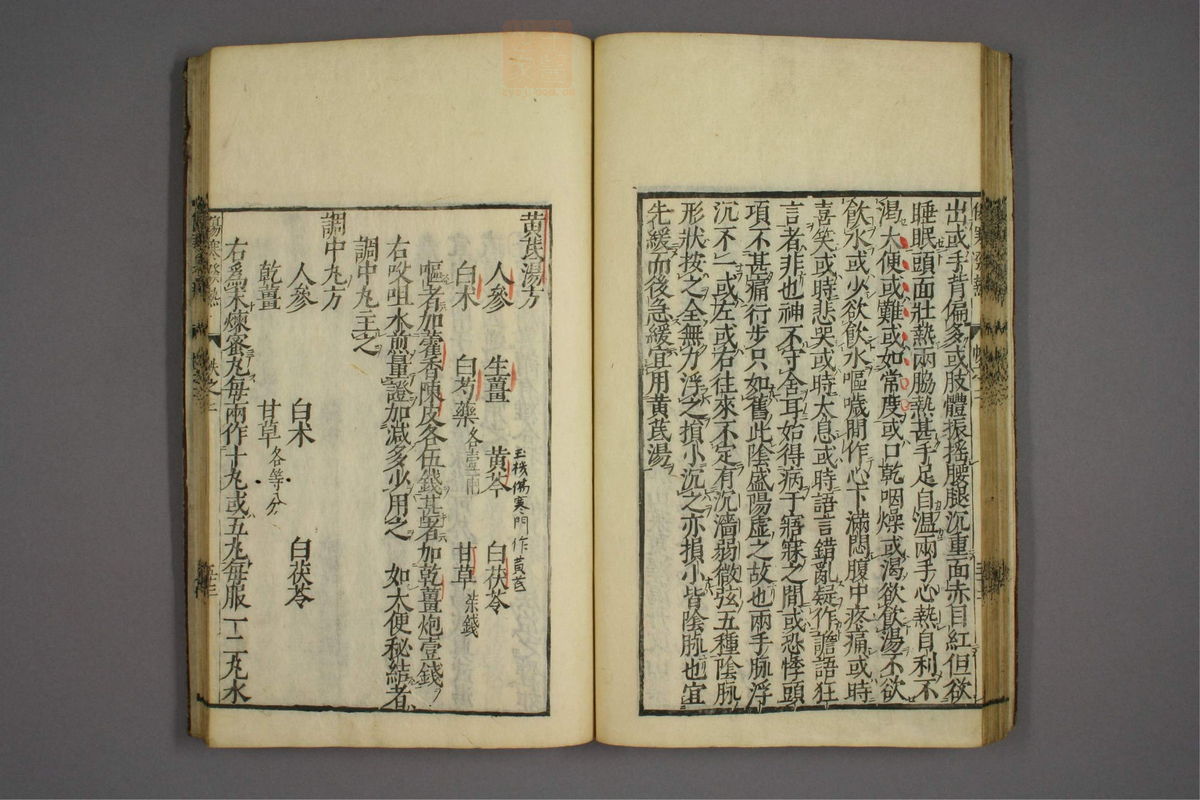 出或手背偏多或肢體振搖腰腿沉重面赤目紅但欲
睡眠頭面壯熱兩脇熱甚手足自温兩手心熱自利不
渴大便或難或如常度或口乾咽燥或渴欲飲湯不欲
飲水或少欲飲水嘔噦間作心下滿悶腹中疼痛或時
喜笑或時悲哭或時太息或時語言錯亂疑作譫語狂
言者非也神不守舍耳始得病于寤寐之間或恐悸頭
項不甚痛行步只如舊此陰盛陽虛之故也兩手脉浮
沉不一或左或右往來不定有沉濇弱微弦五種陰脉
形狀按之全無力浮之損小沉之亦損小皆陰脉也宜
先緩而後急緩宜用黄茋湯
黄茋湯方
人參 生薑 黄芩 白茯苓
玉機傷寒門作黄芪
白朮 白芍藥各壹兩 甘草柒錢
嘔者加藿香陳皮各伍錢甚者加乾薑炮壹錢
右㕮咀水煎量證加減多少用之 如大便秘結者
調中丸主之
調中丸方
人參 白朮 白茯苓
乾薑 甘草各等分
右爲末煉蜜丸每兩作十丸或五丸每服一二丸水